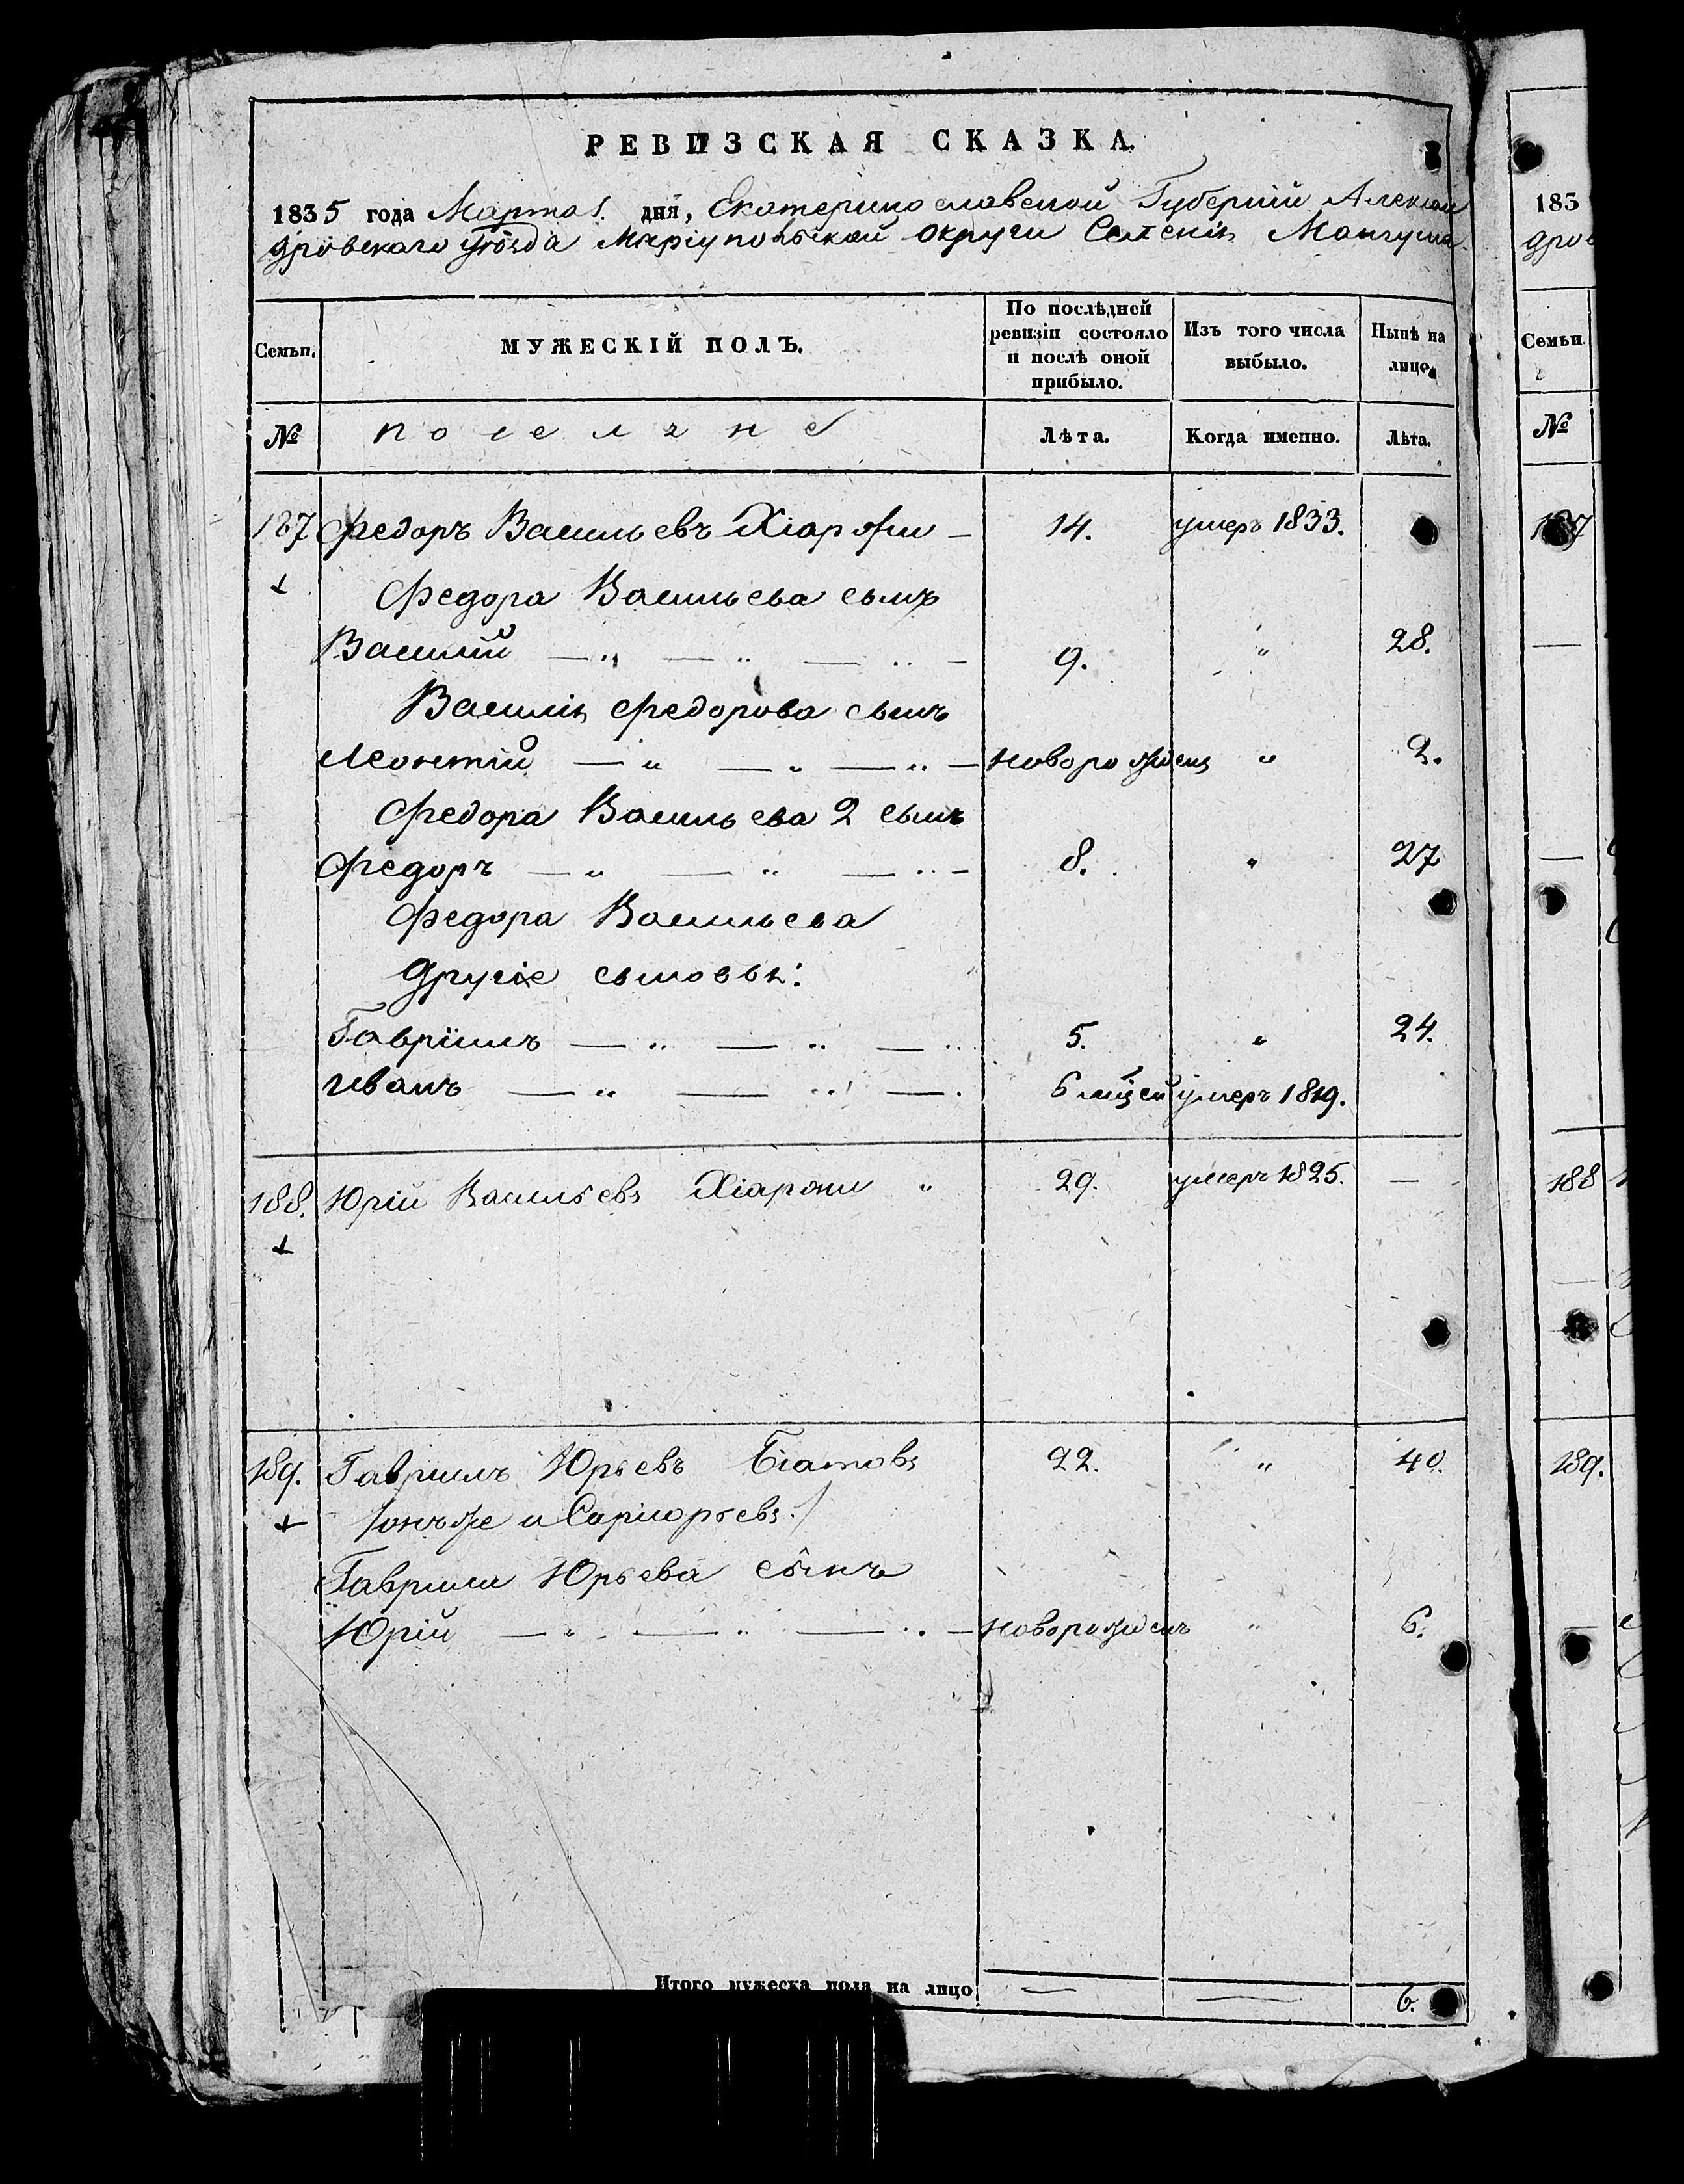 РЕВИЗСКАЯ СКАЗКА.
1835 года Марта 1. дня, Екатеринославской Губерніи Алексан
дровскаго уѣзда Маріупольской округи Селенія Мангуша.
Семьи. МУЖЕСКІЙ ПОЛЪ. По послѣдней ревизіи состояло и послѣ оной прибыло. Изъ того числа выбыло. Нынѣ на лицо.
№ поселяне Лѣта. Когда именно. Лѣта.
187 Федоръ Васильевъ Хіаржи — 14. умеръ 1833.
Федора Васильева сынъ
Василій — " — " — " — 9. " 28.
Василія Федорова сынъ
Леонтій — " — " — " — новорожденъ " 2.
Федора Васильева 2 сынъ
Федоръ — " — " — " — 8. " 27
Федора Васильева
другіе сыновья:
Гавріилъ — " — " — " 5. " 24.
Иванъ — " — " — . 6 мѣцей умеръ 1819.
188. Юрій Васильевъ Хіаржи " 29. умеръ 1825. —
189. Гавріилъ Юрьевъ 22. " 40.
/онъ же и
Гавріила Юрьева сынъ
Юрій — " — " — " — новорожденъ " 6.
Итого мужеска пола на лицо — — 6.
183
дров
Семьи.
№
187
—
—
188
189.